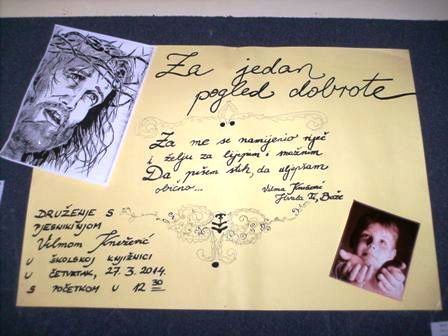 Za jedan
pogled dobrote
Za me se namijenio riječ
i želju za lijepim i snažnim
Da pišem stih, da uljepšam
obično...
Vilma Knežević
Hvala Ti, Bože
DRUŽENJE S
PJESNIKINJOM
Vilmom Knežević
U ŠKOLSKOJ KNJIŽNICI
U ČETVRTAK, 27. 3. 2014.
S POČETKOM U 12 30